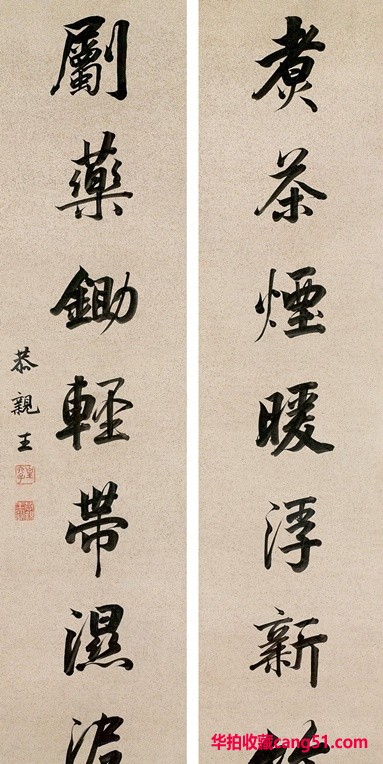 煮茶煙暖浮新
劚藥鋤輕帶濕
恭親王
华拍收藏cang51.com